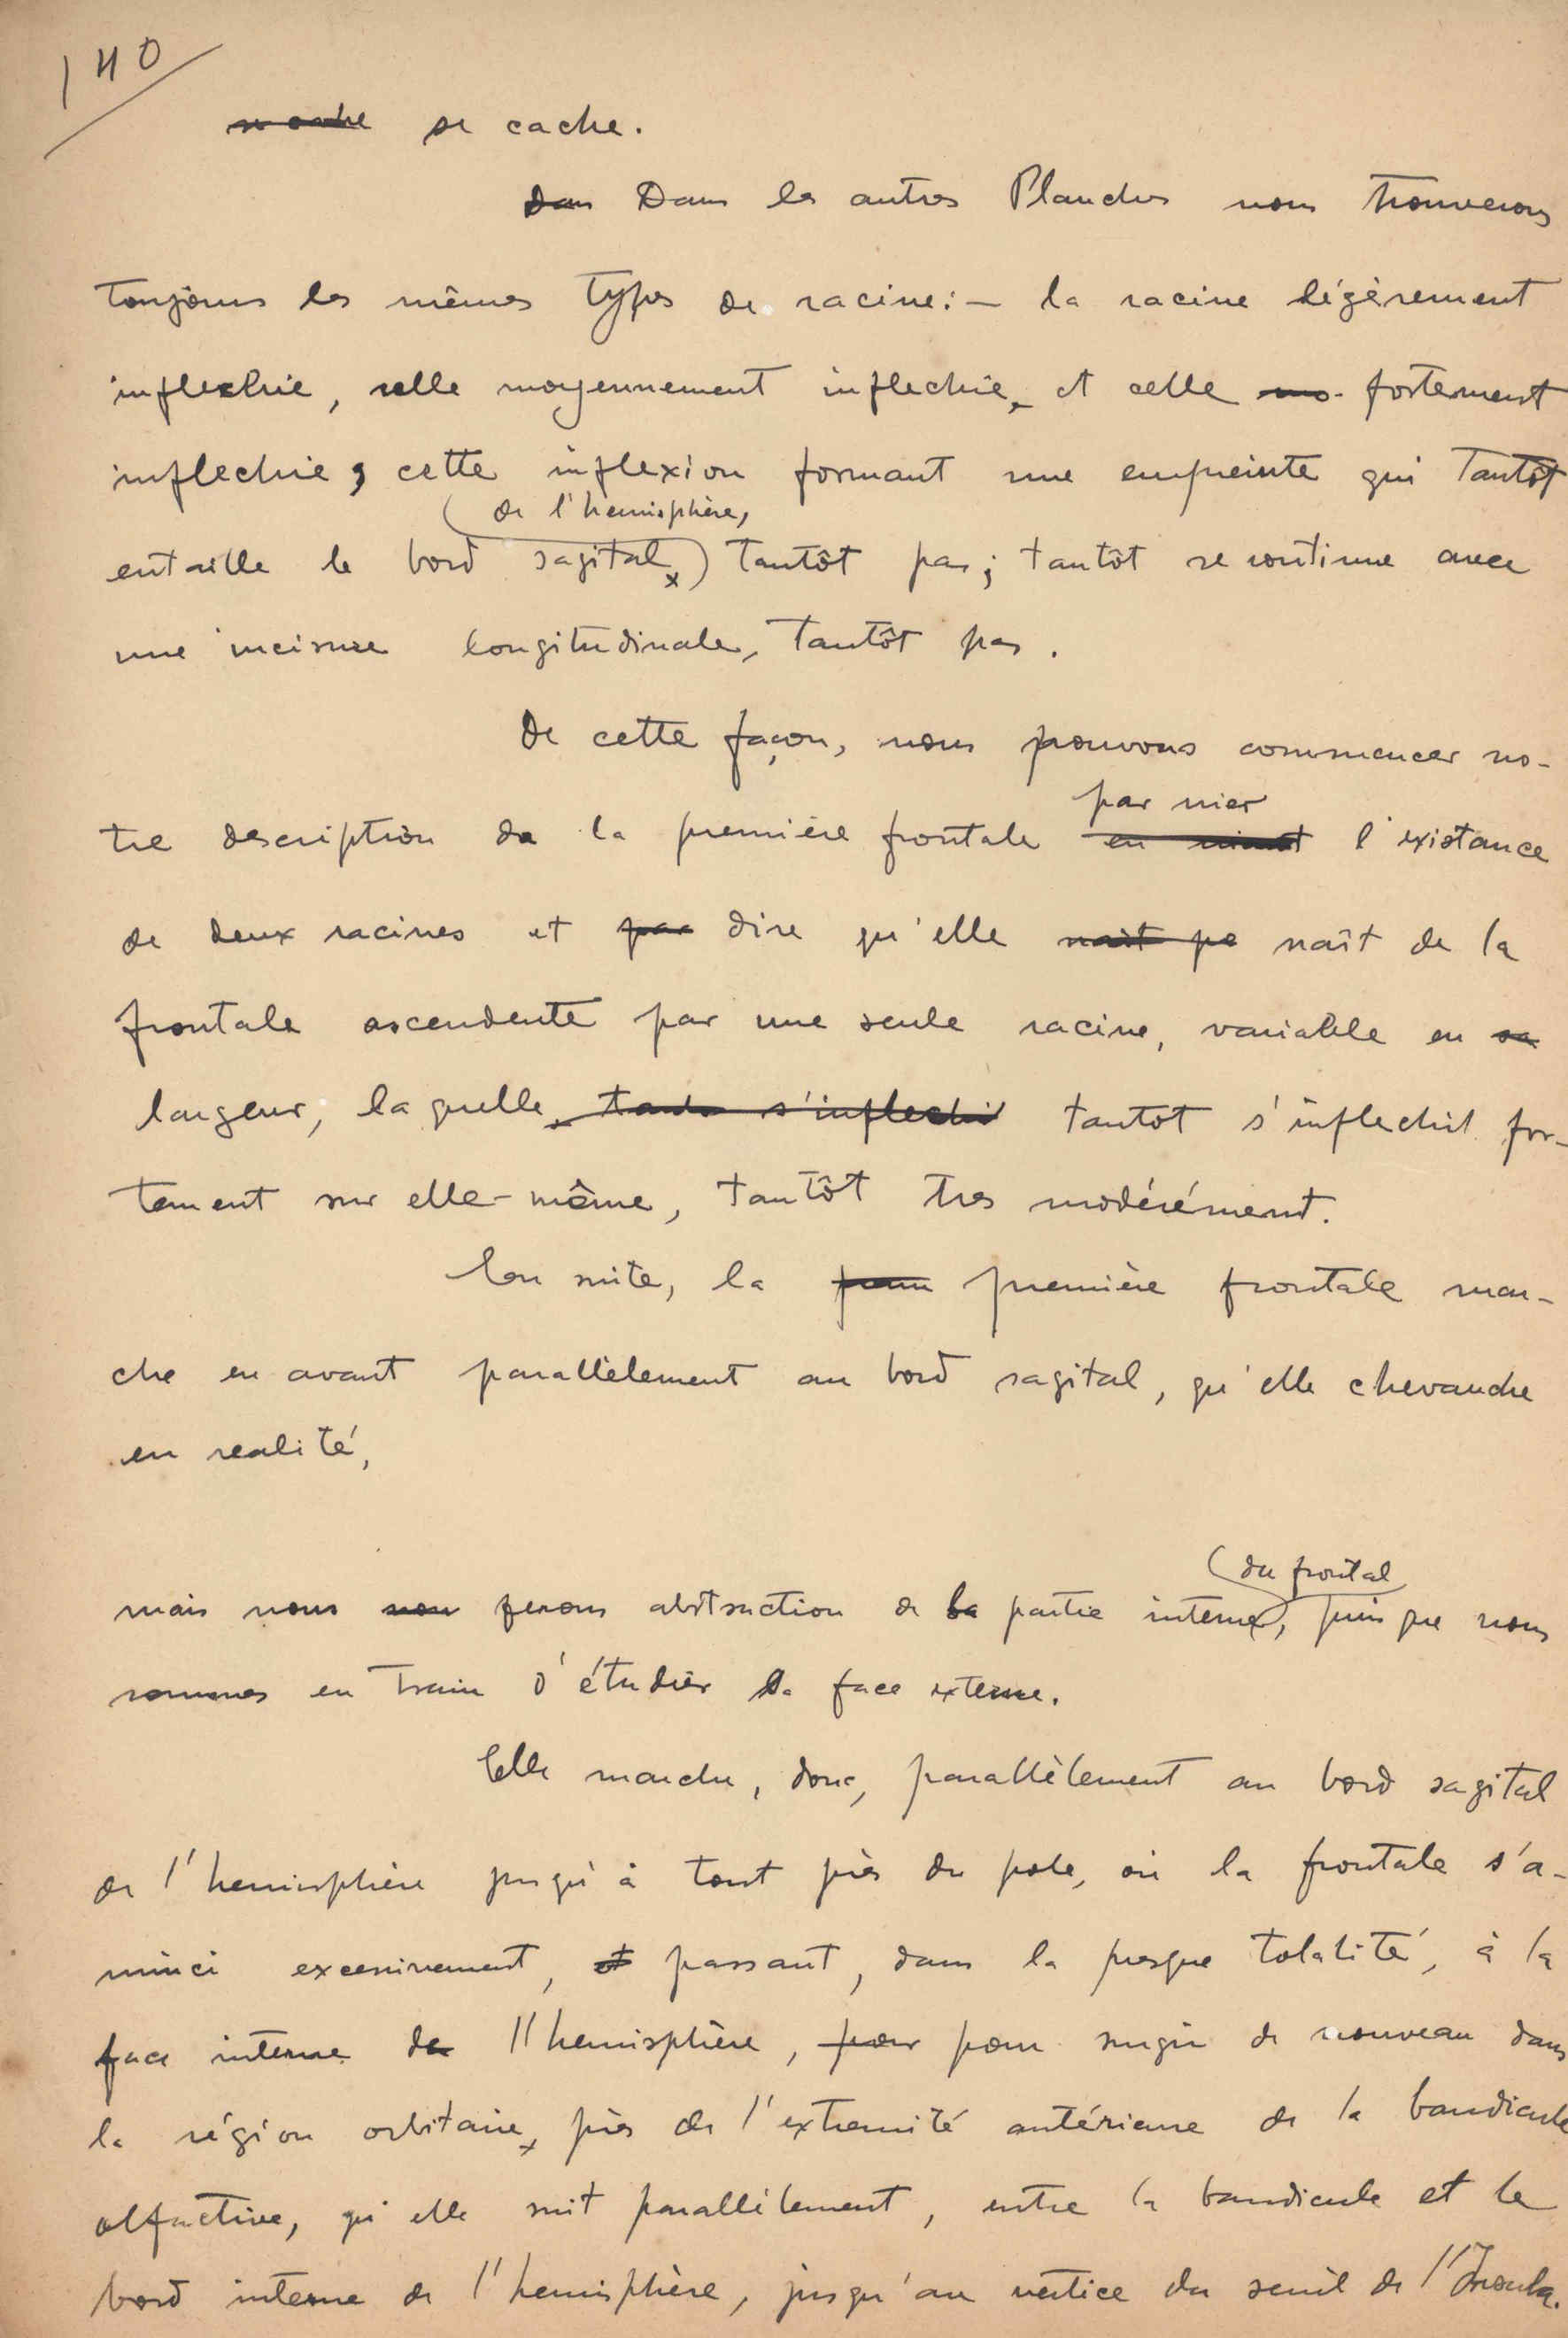 140
se cache se cache.
Dans Dans les autres Planches nous trouverons
toujours les mêmes types de racine: — la racine légèrement
inflechie, celle moyennement inflechie, et celle mo- fortement
inflechie, cette inflexion formant une empreinte qui tantôt
de l'hemisphère,
entaille le bord sagital,) tantôt pas; tantôt se continue avec
une incisure longitudinale, tantôt pas.
De cette façon, nous pouvons commencer no-
par nier
tre description de la première frontale en niant l'existance
de deux racines et par dire qu'elle nait pa naît de la
frontale ascendente par une seule racine, variable en sa
largeur, laquelle, tanto s'inflechi tantot s'inflechit for-
tement sur elle-même, tantôt tres modérément.
En suite, la prem première frontale mar-
che en avant parallèlement au bord sagital, qu'elle chevauche
en realité,
du frontal
mais nous nou ferons abstraction de la partie interne), puis que nous
sommes en train d'étudier la face externe.
Elle marche, donc, parallèlement au bord sagital
de l'hemisphère jusqu'à tout près du pole, où la frontale s'a-
minci excessivement, et passant, dans la presque totalité, à la
face interne de l'hemisphère, pour pour surgir de nouveau dans
la région orbitaire, près de l'extremité antérieure de la bandicule
olfactive, qu'elle suit parallèlement, entre la bandicule et le
bord interne de l'hemisphère, jusqu'au vertice du seuil de l'Insula.